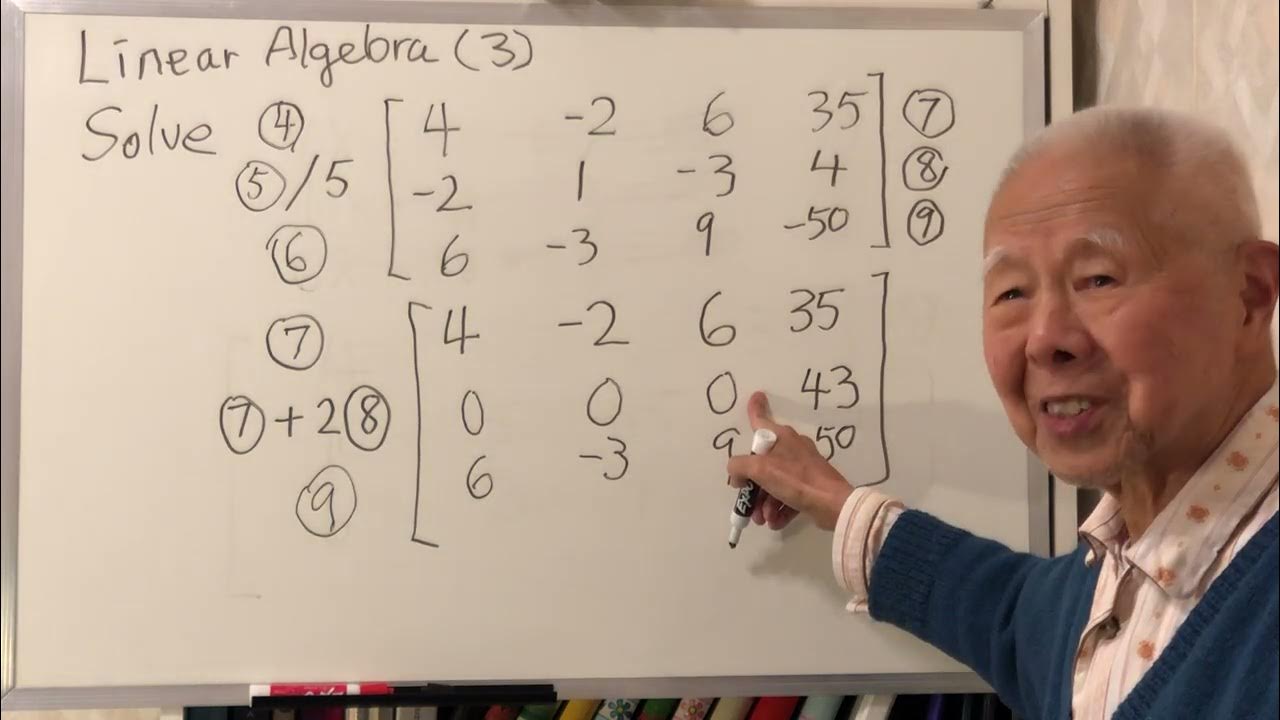 Linear Algebra (3)
Solve ④ [ 4 -2 6 35 ] ⑦
⑤/5 -2 1 -3 4 ⑧
⑥ 6 -3 9 -50 ⑨
⑦ [ 4 -2 6 35 ]
⑦+2⑧ 0 0 0 43
⑨ 6 -3 9 50
EXPO